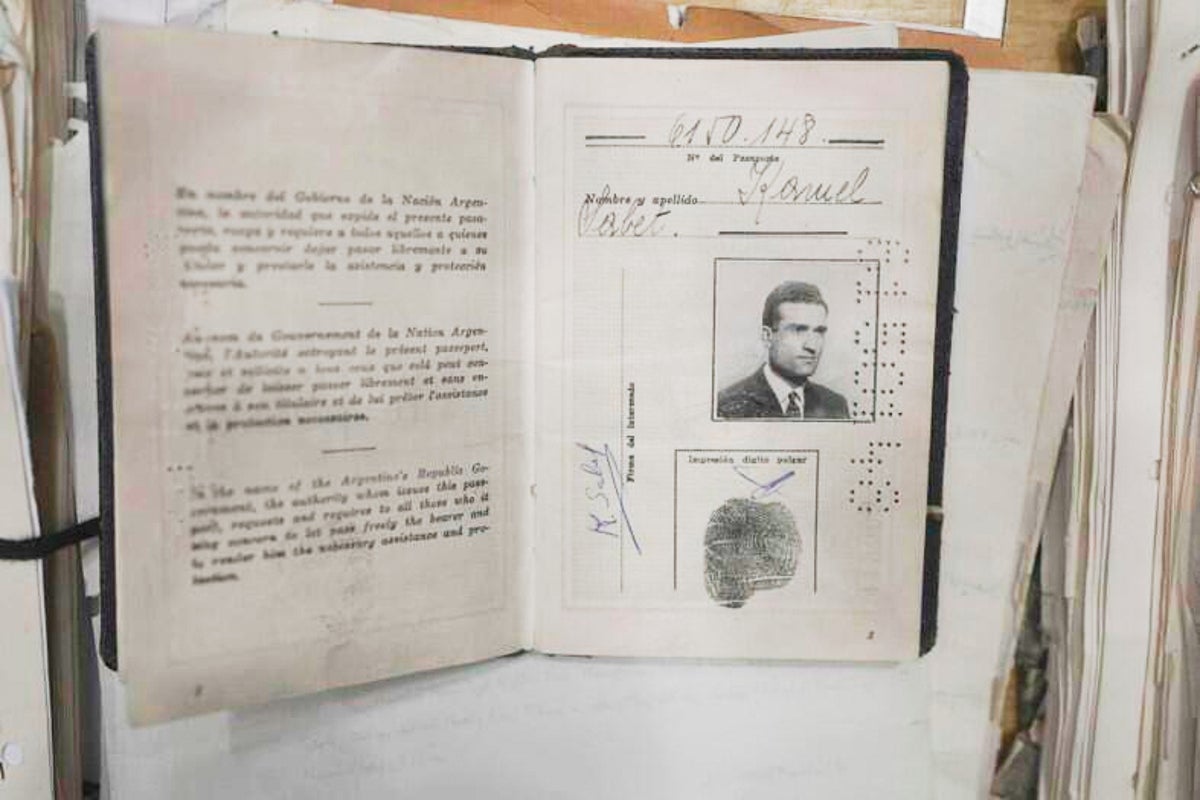 En nombre del Gobierno de la Nación Argen-
tina, la autoridad que expide el presente pasa-
porte, ruega y requiere a todos aquellos a quienes
pueda concernir dejar pasar libremente a su
titular y prestarle la asistencia y protección
necesaria.
Au nom du Gouvernement de la Nation Argen-
tine, l'Autorité octroyant le présent passeport,
prie et sollicite a tous ceux que celá peut con-
cerner de laisser passer librement et sans en-
traves á son titulaire et de lui prêter l'assistance
et la protection necessaires.
In the name of the Argentine's Republic Go-
vernment, the authority whom issue this pass-
port, requests and requires to all those who it
may concern to let pass freely the bearer and
to render him the necessary assistance and pro-
tection.
6150.148
Nº del Pasaporte
Nombre y apellido Kamel
Sabet.
Firma del Interesado
K Sabet
Impresión dígito pulgar